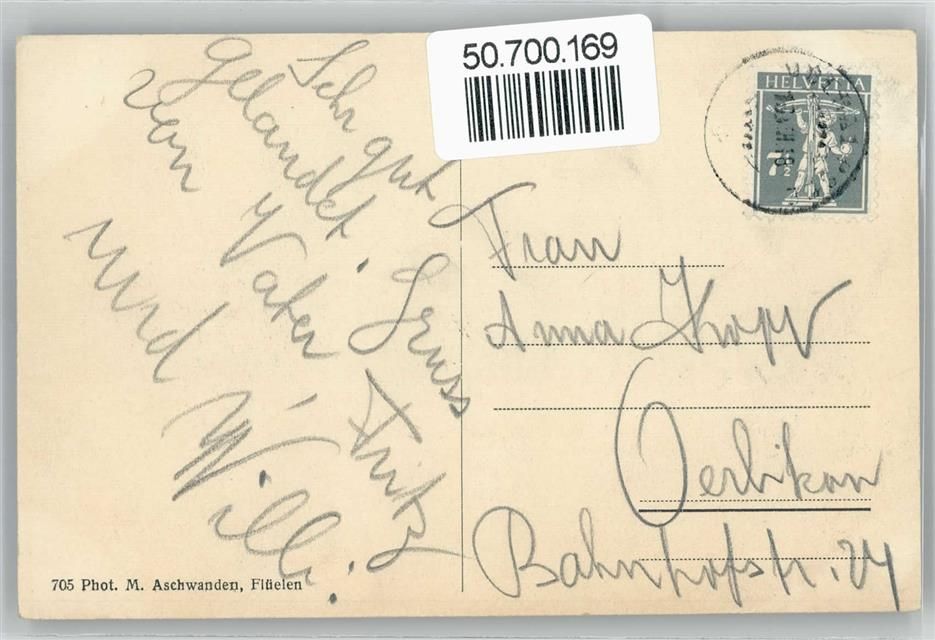 50.700.169
HELVETIA
7½
Sehr gut
gelandet. Gruss
von Vater, Fritz
und Willi.
Frau
Anna Kopp
Oerlikon
Bahnhofstr. 24
705 Phot. M. Aschwanden, Flüelen